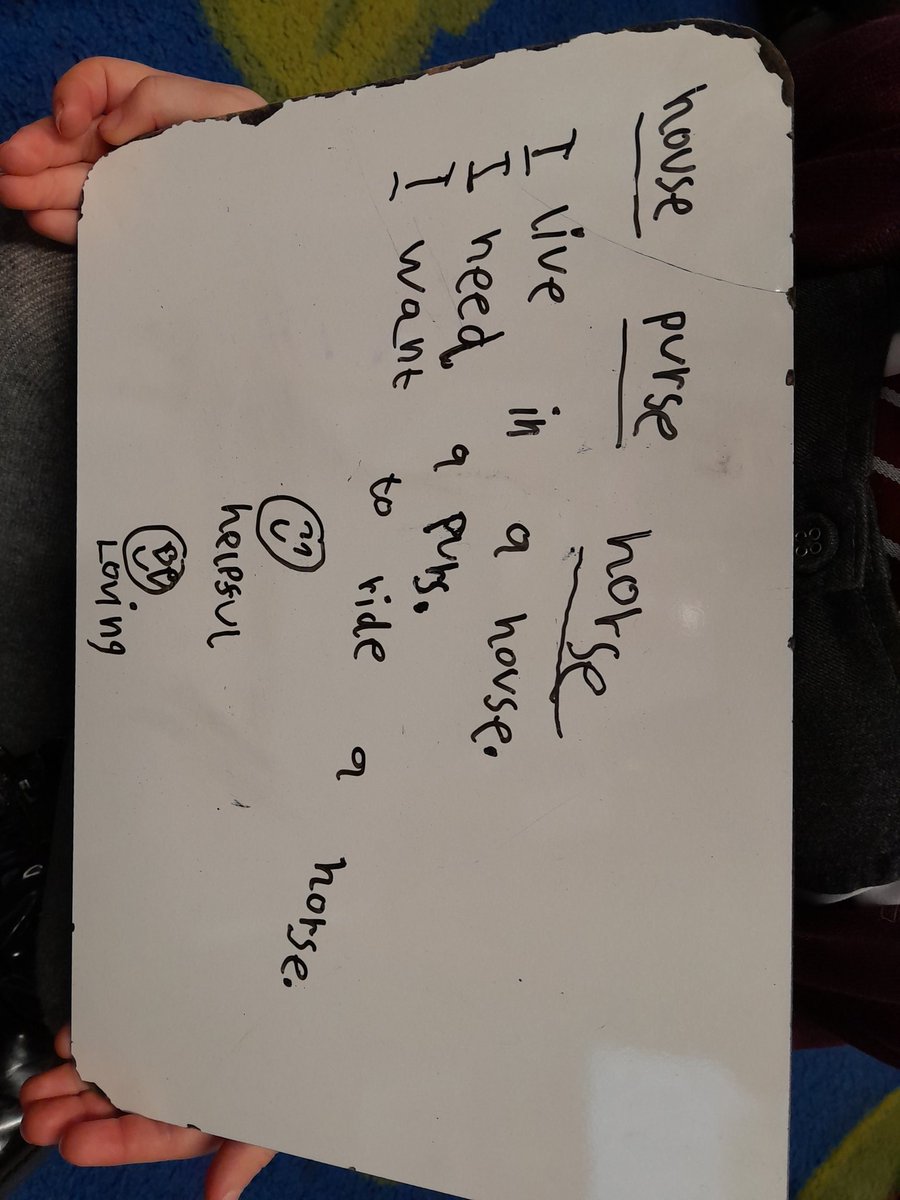 house purse horse
I live in a house.
I need a purs.
I want to ride a horse.
helpful
Loving